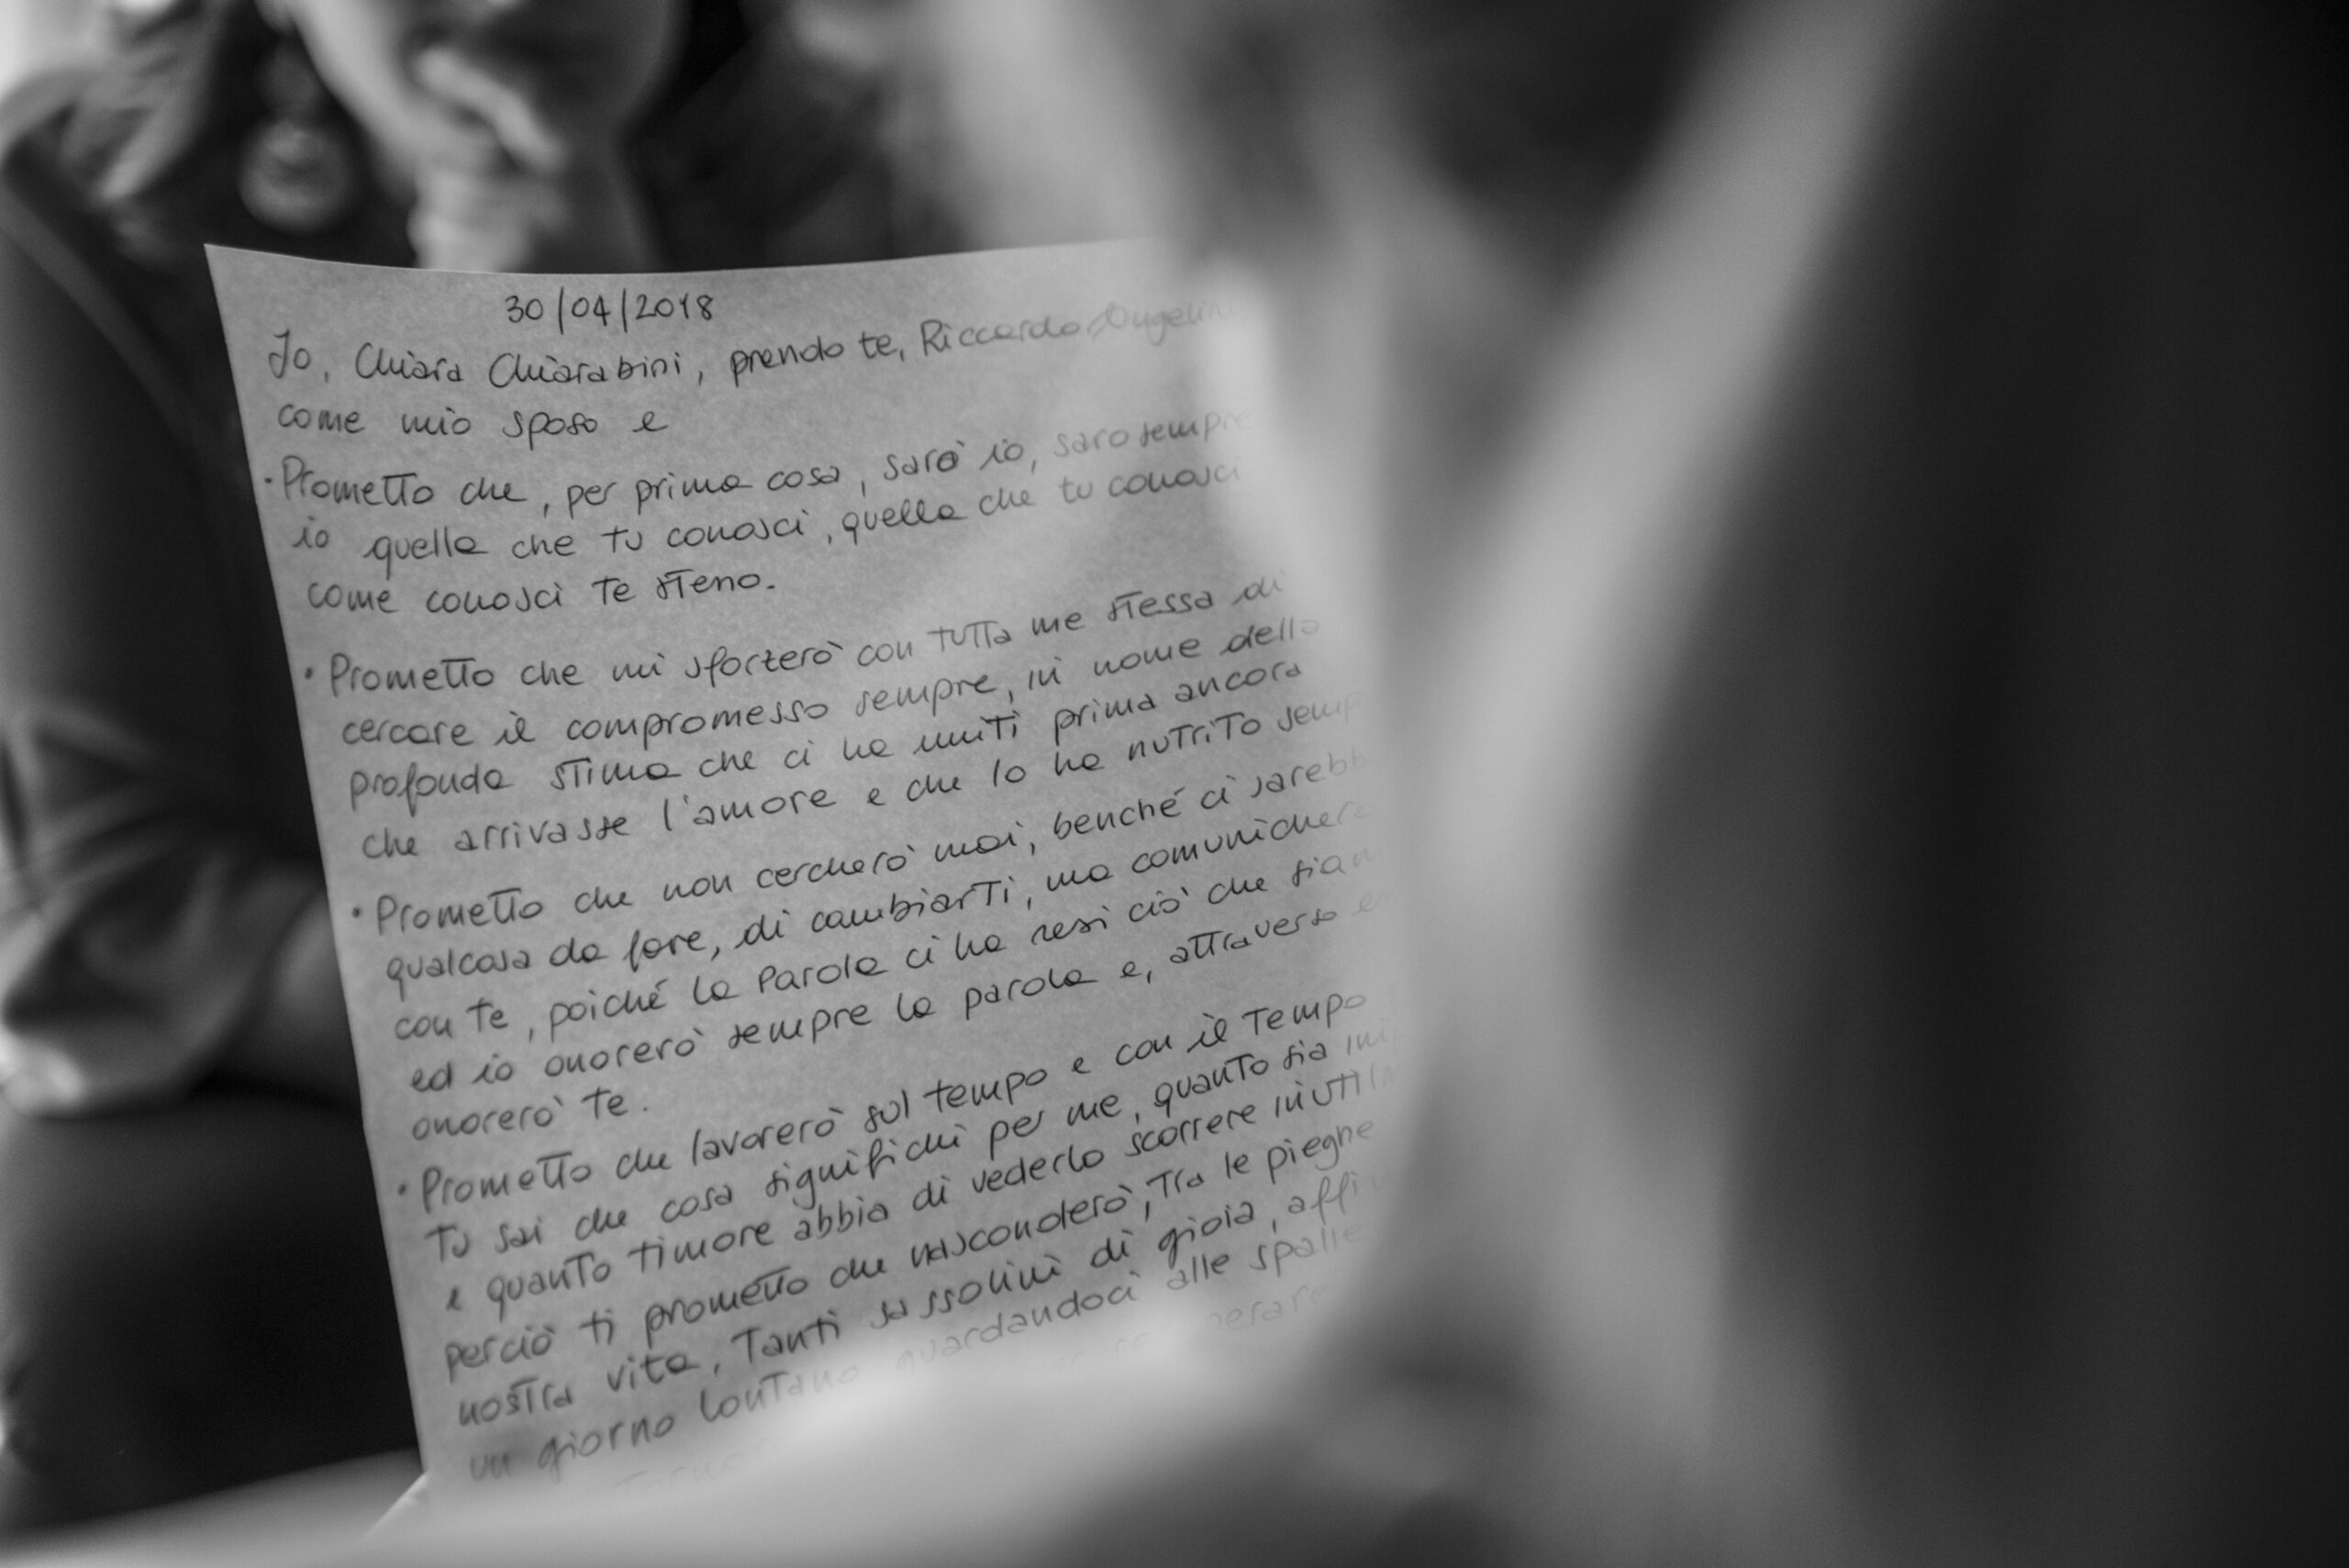 30/04/2018
Io, Chiara Chiarabini, prendo te, Riccardo
come mio sposo e
• Prometto che, per prima cosa, sarò io, sarò sempre
io quella che tu conosci, quella che tu conosci
come conosci te stesso.
• Prometto che mi sforzerò con tutta me stessa di
cercare il compromesso sempre, in nome della
profonda stima che ci ha uniti prima ancora
che arrivasse l'amore e che lo ha nutrito
• Prometto che non cercherò mai, benché ci
qualcosa da fare, di cambiarti, ma
con te, poiché la Parola ci ha resi ciò che
ed io onorerò sempre la parola e, attraverso
onorerò te.
• Prometto che lavorerò sul tempo e con il tempo
Tu sai che cosa significhi per me, quanto sia
e quanto timore abbia di vederlo scorrere
perciò ti prometto che nasconderò, tra le pieghe
nostra vita, tanti sassolini di gioia,
un giorno lontano guardandoci alle spalle